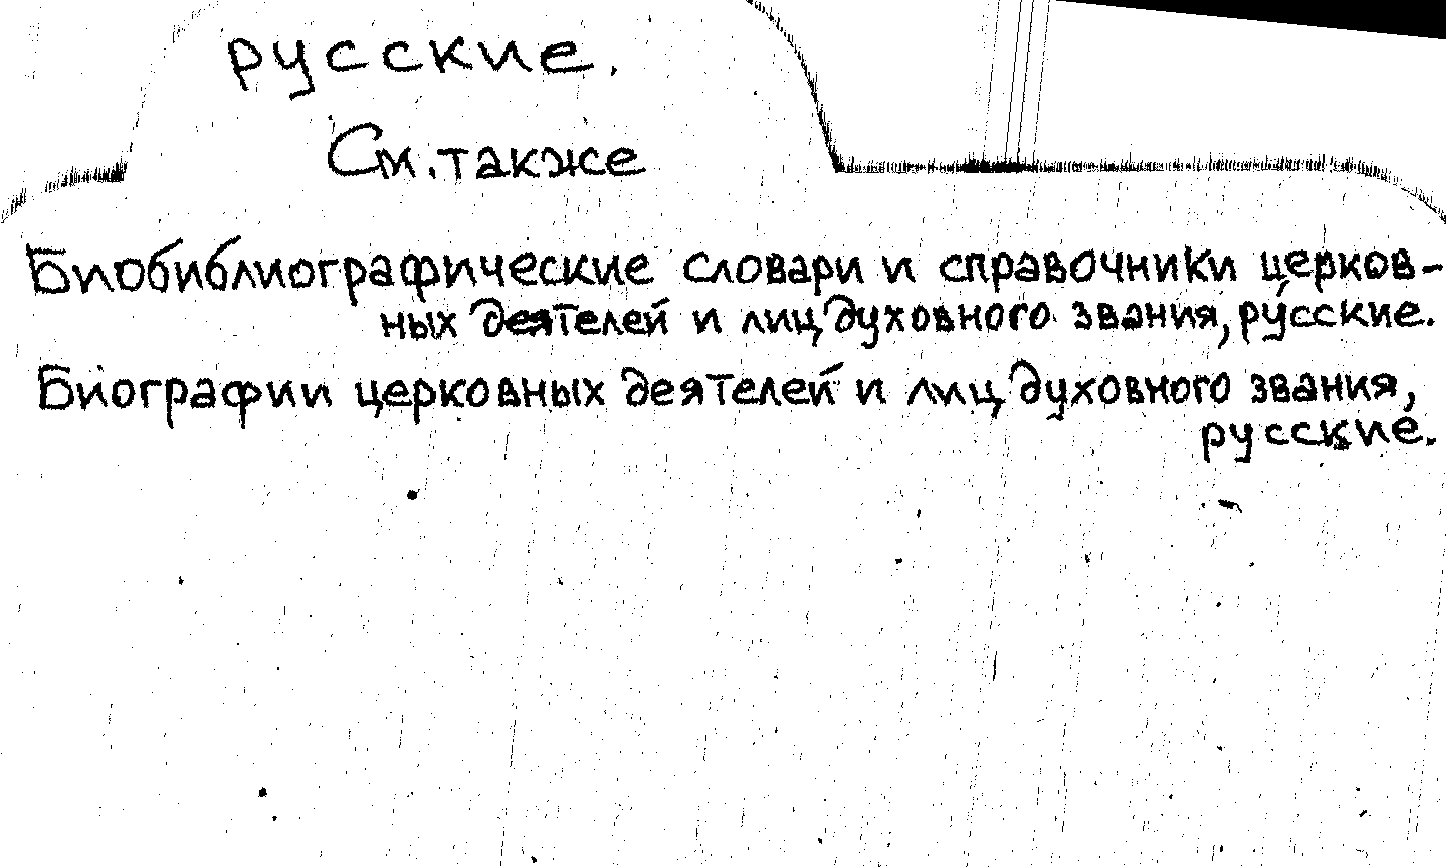 русские.
См. также
Биобиблиографические словари и справочники церков-
ных деятелей и лиц духовного звания, русские.
Биографии церковных деятелей и лиц духовного звания,
русские.